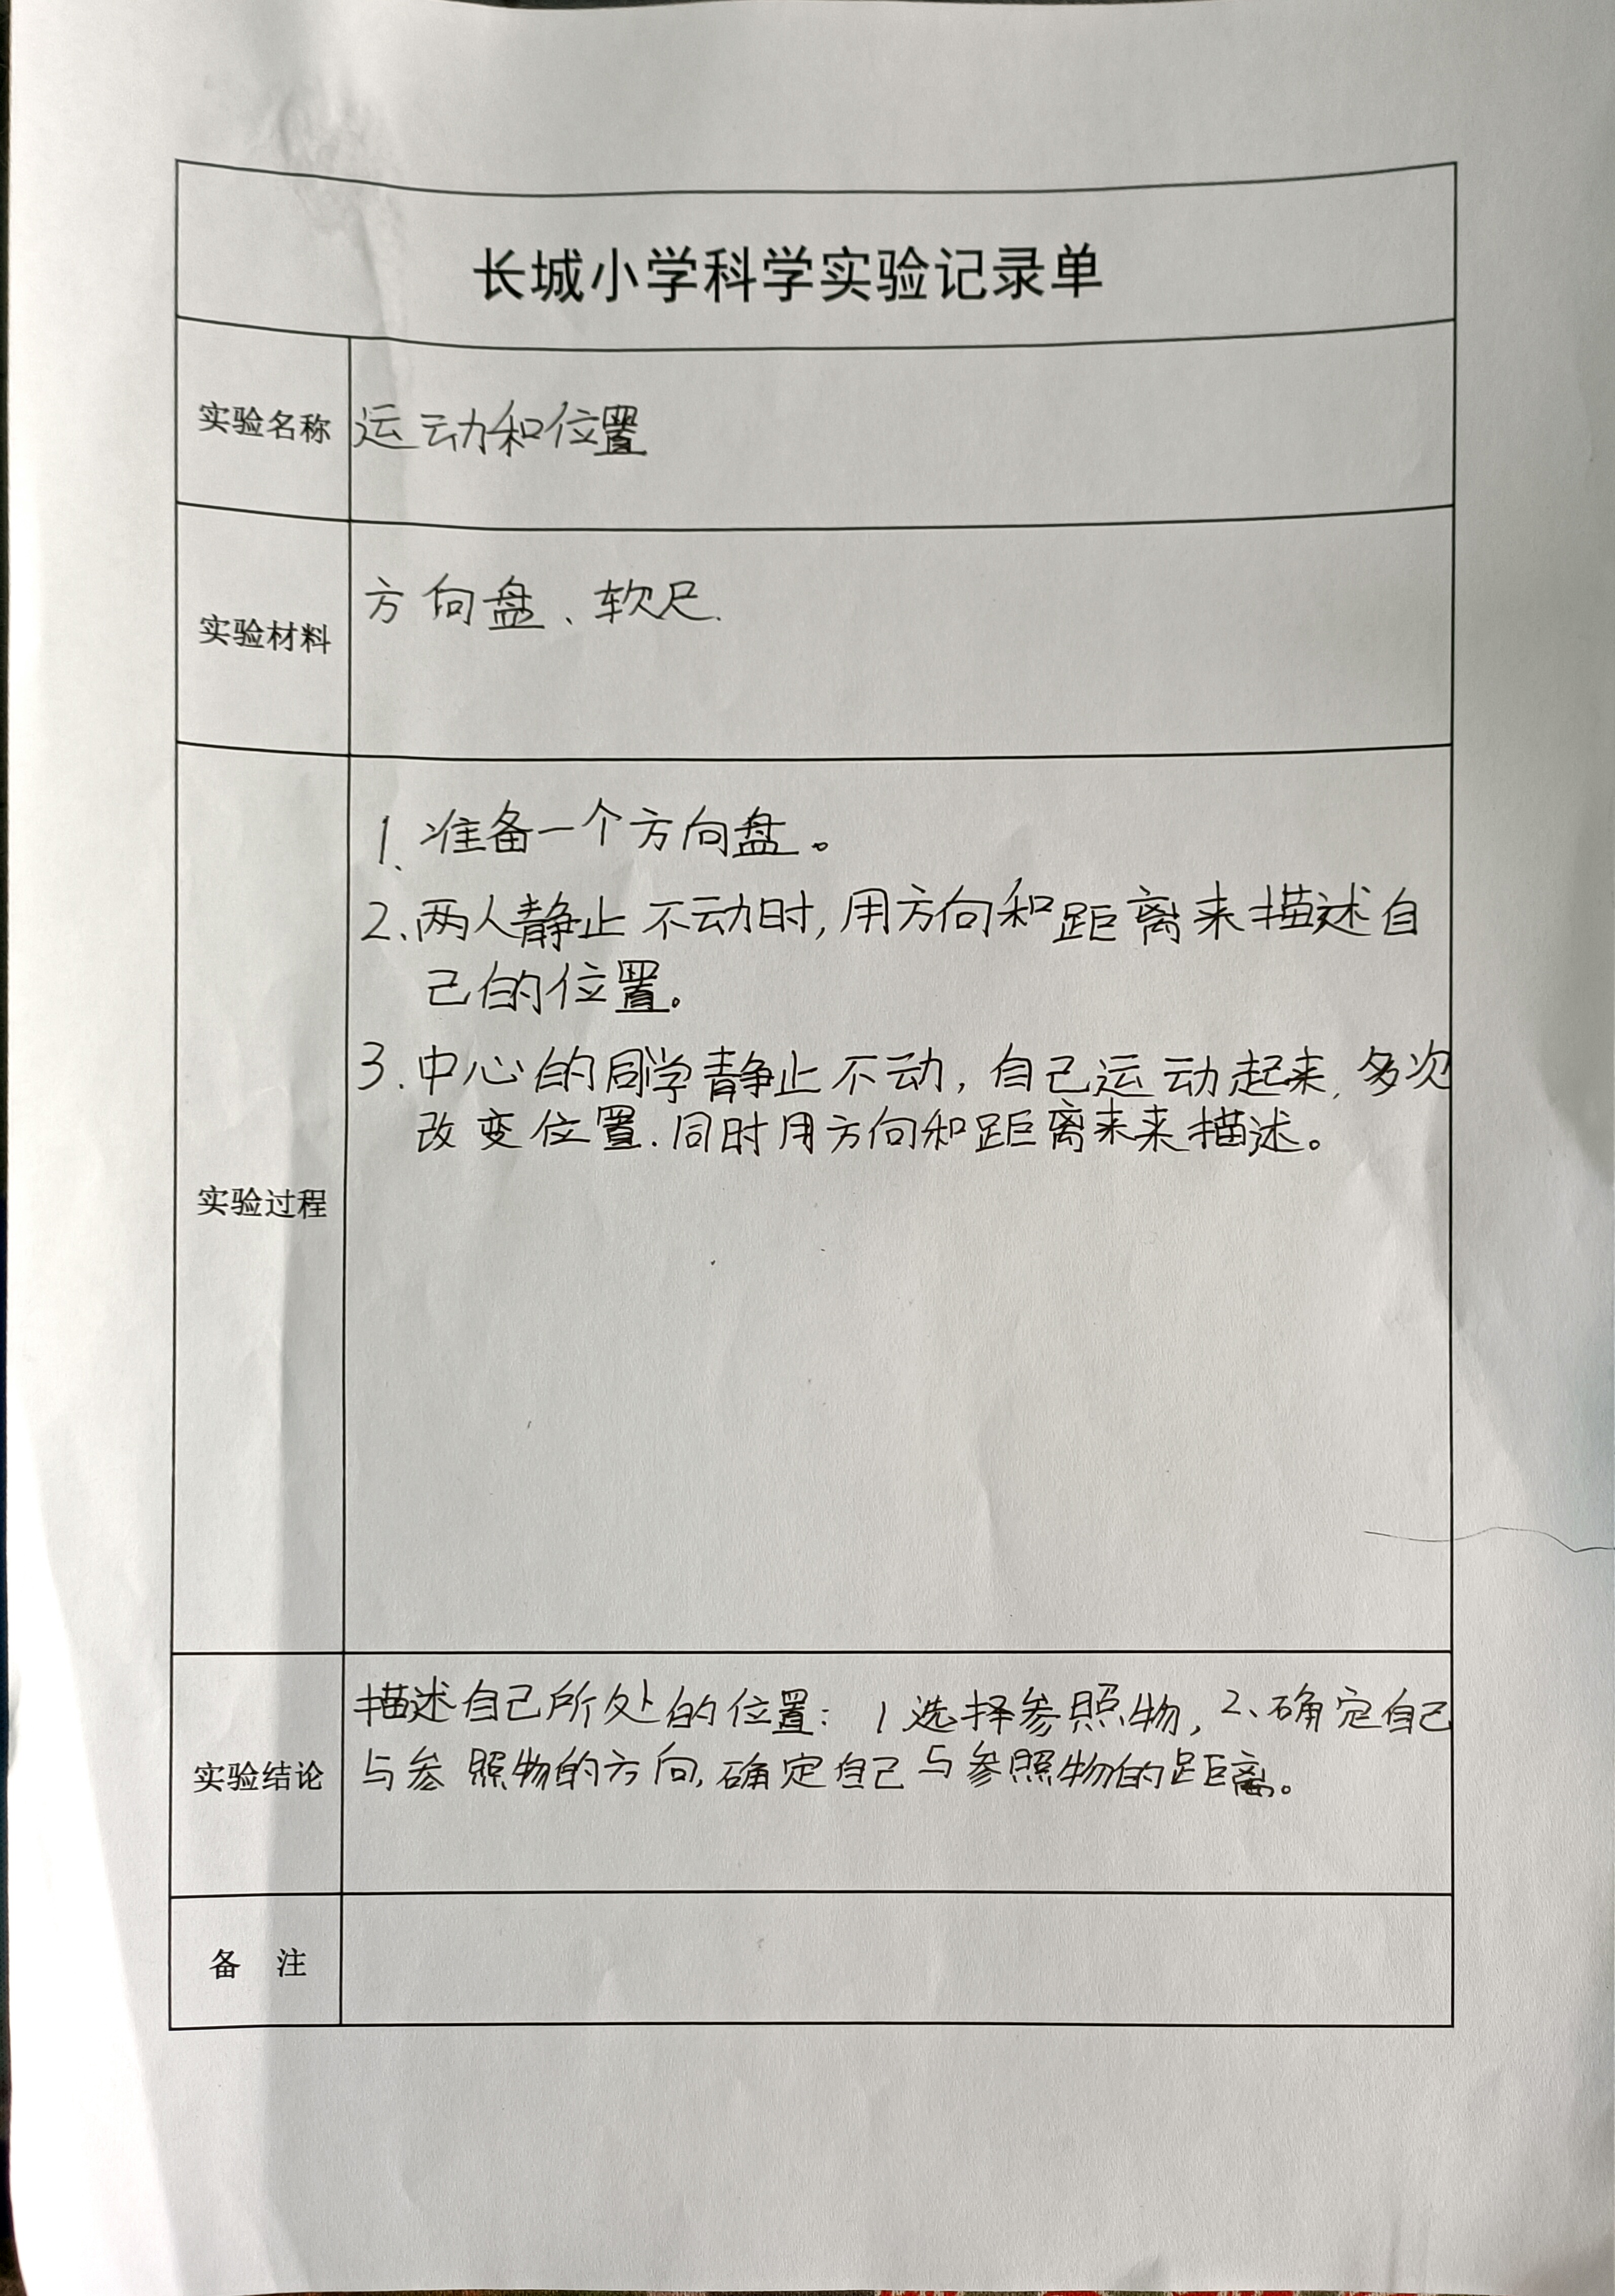 长城小学科学实验记录单
实验名称 运动和位置
实验材料 方向盘、软尺.
实验过程
1、准备一个方向盘。
2、两人静止不动时,用方向和距离来描述自
己的位置。
3.中心的同学静止不动,自己运动起来,多次
改变位置.同时用方向和距离来来描述。
实验结论
描述自己所处的位置: 1选择参照物,2、确定自己
与参照物的方向,确定自己与参照物的距离。
备 注